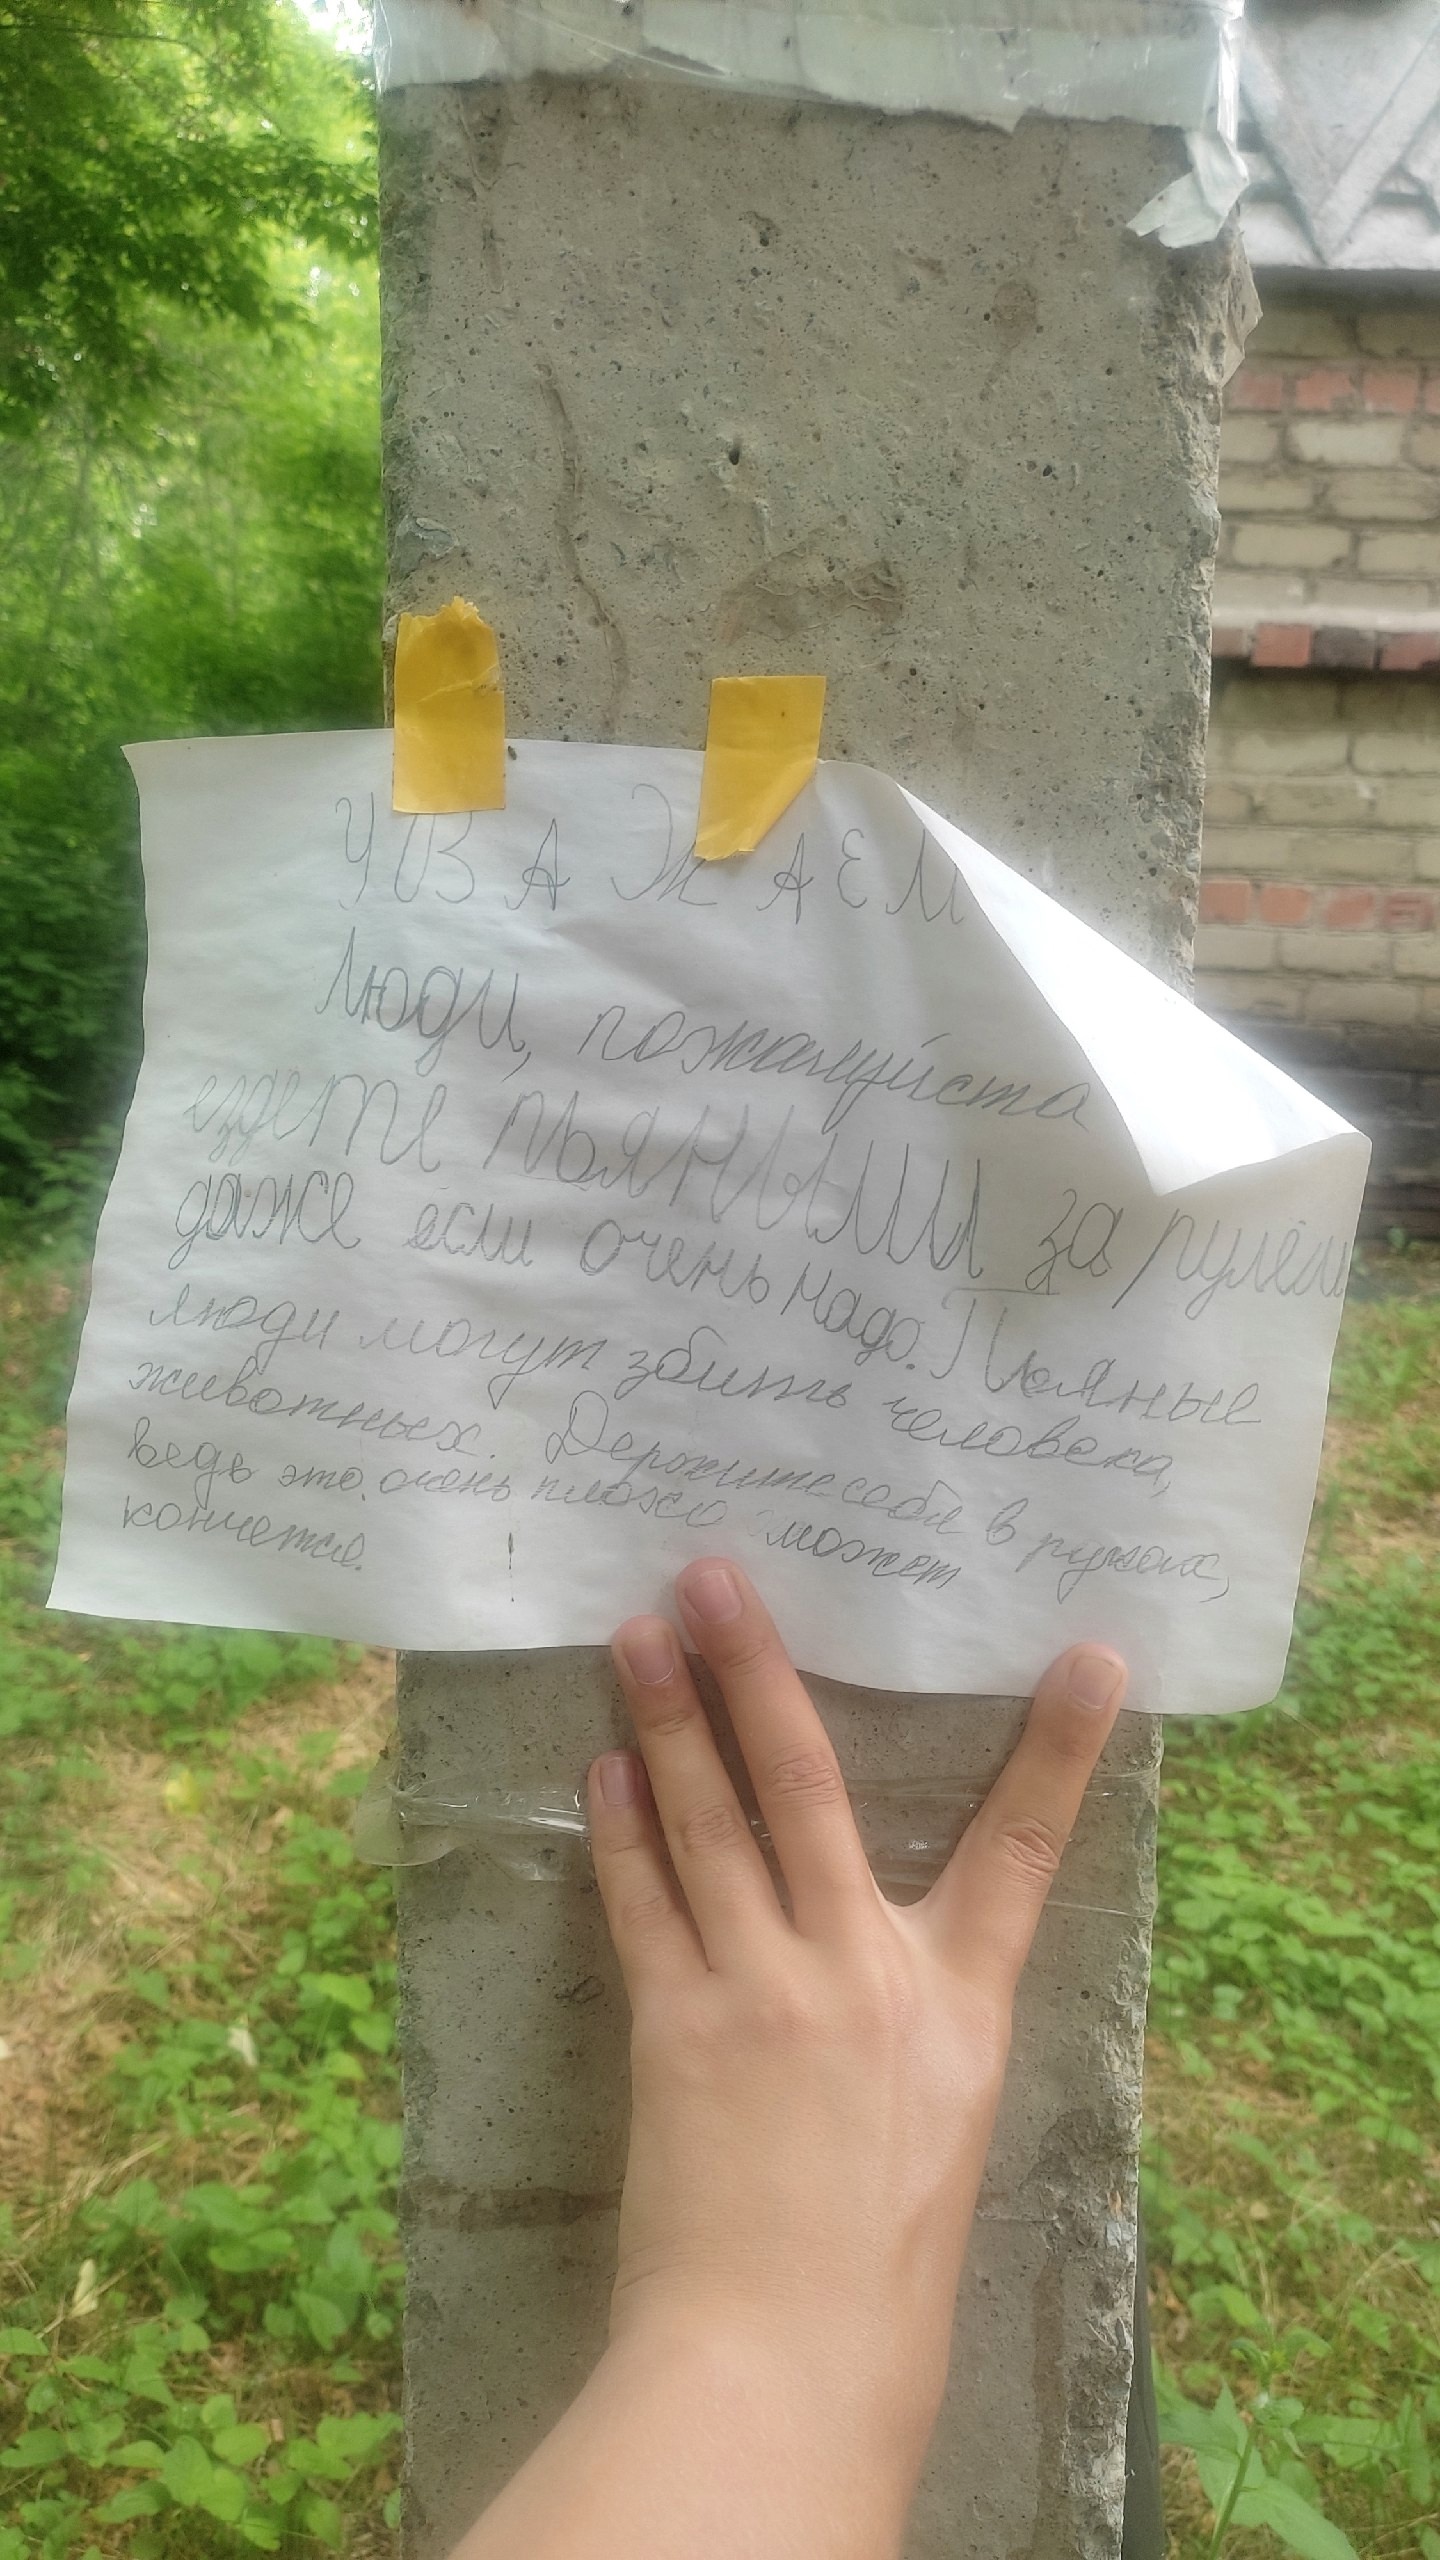 УВАЖАЕМ
Люди, пожалуйста
ездете пьяными за рулём
даже если очень надо. Пьяные
люди могут збить человека,
животных. Держите себя в руках,
ведь это очень плохо может
кончется. !